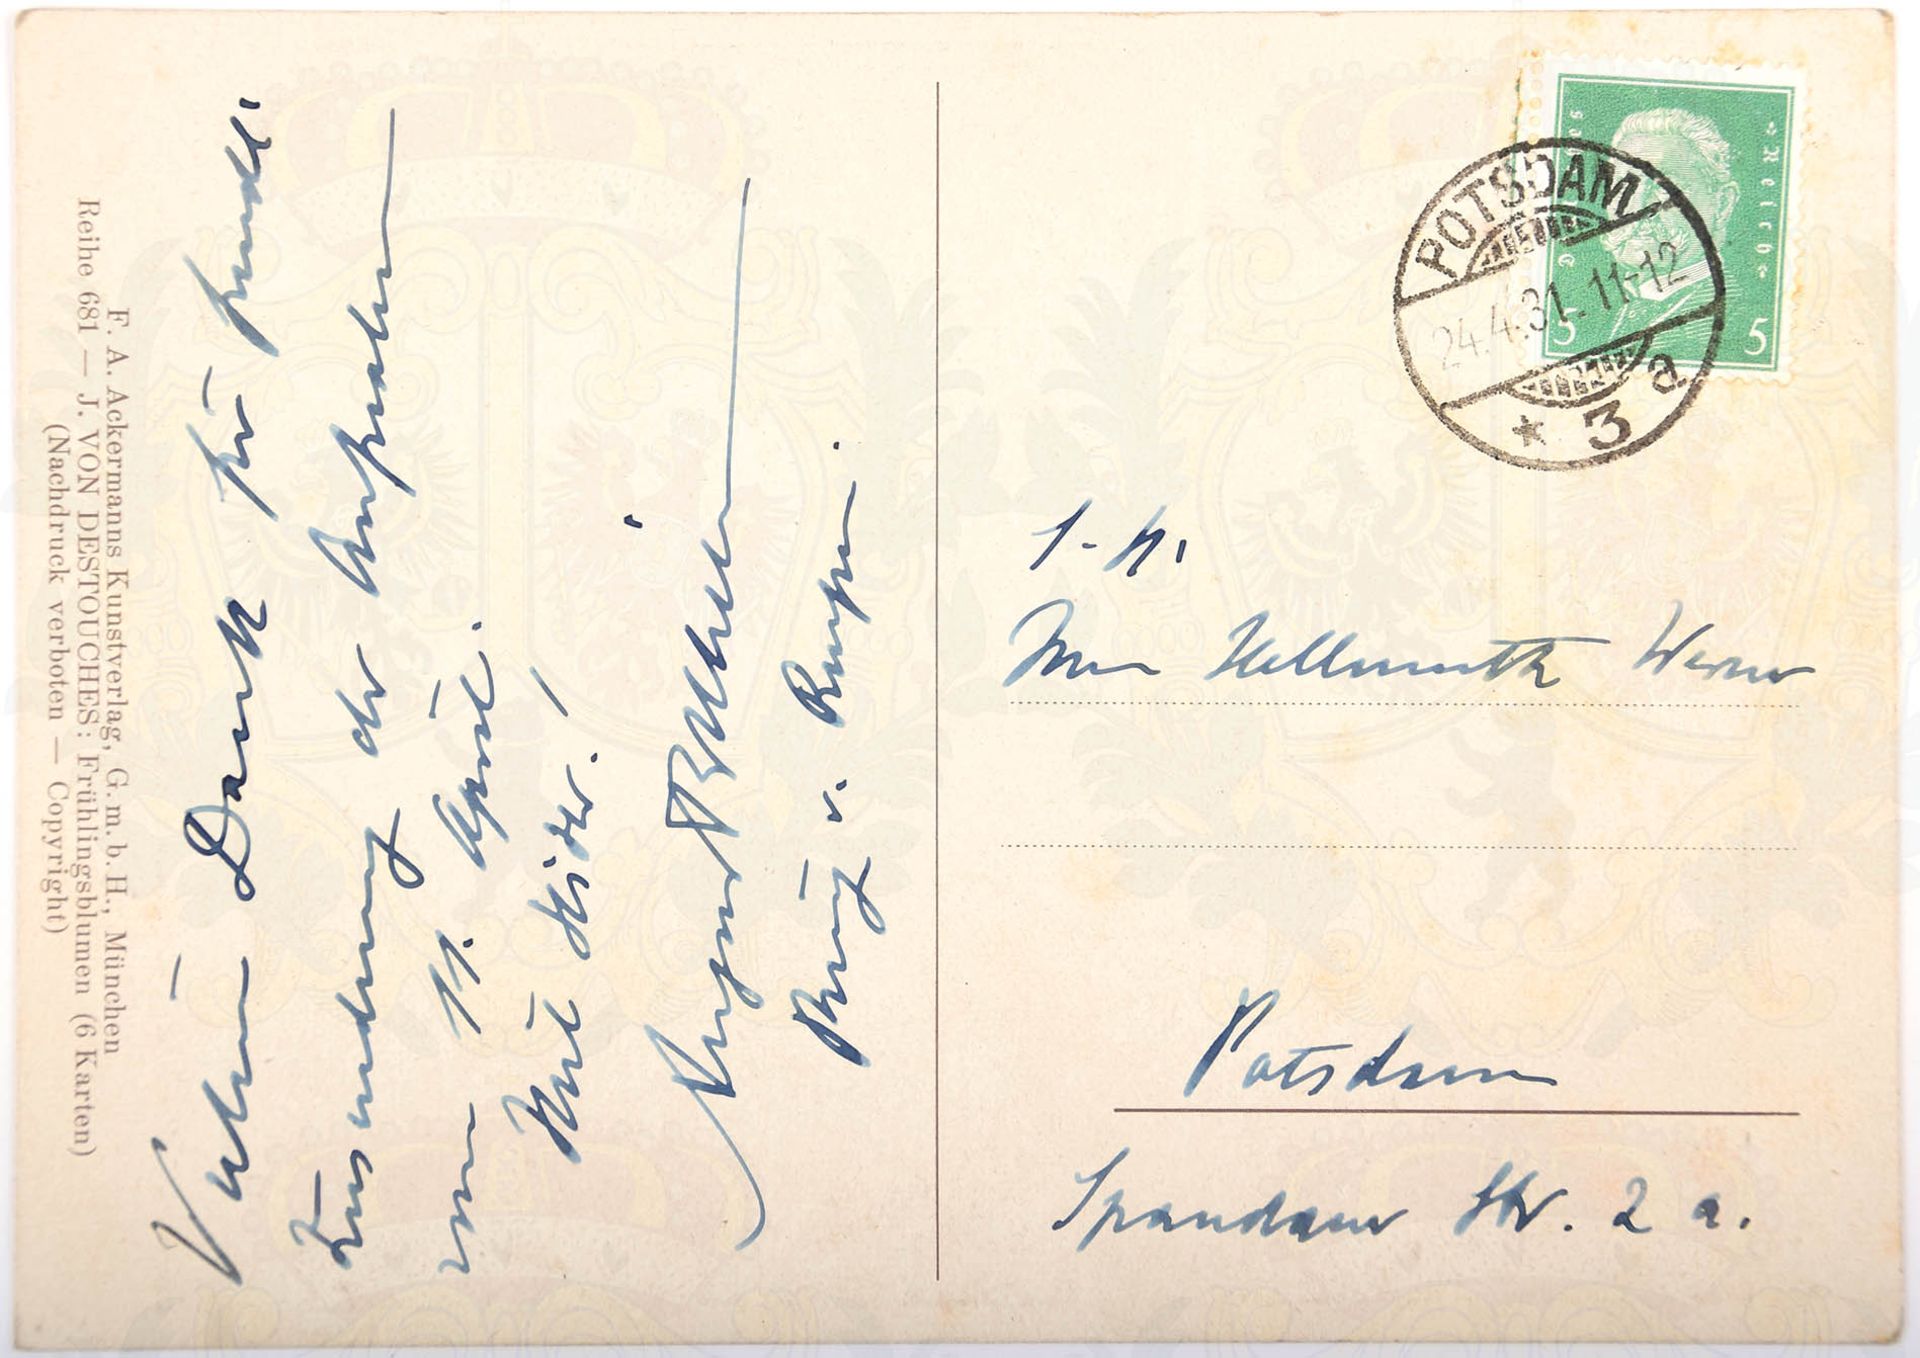 Vielen Dank für freundl.
Zusendung der Aufnahmen
vom 11. April.
Mit
August Wilhelm
Prinz v. Preußen.
F. A. Ackermanns Kunstverlag, G. m. b. H., München
Reihe 681 — J. VON DESTOUCHES: Frühlingsblumen (6 Karten)
(Nachdruck verboten — Copyright)
Deutsches
Reich
5
5
POTSDAM
24.4.31. 11-12
* 3 a
Herrn Hellmuth Werner
Potsdam
Spandauer Str. 2 a.